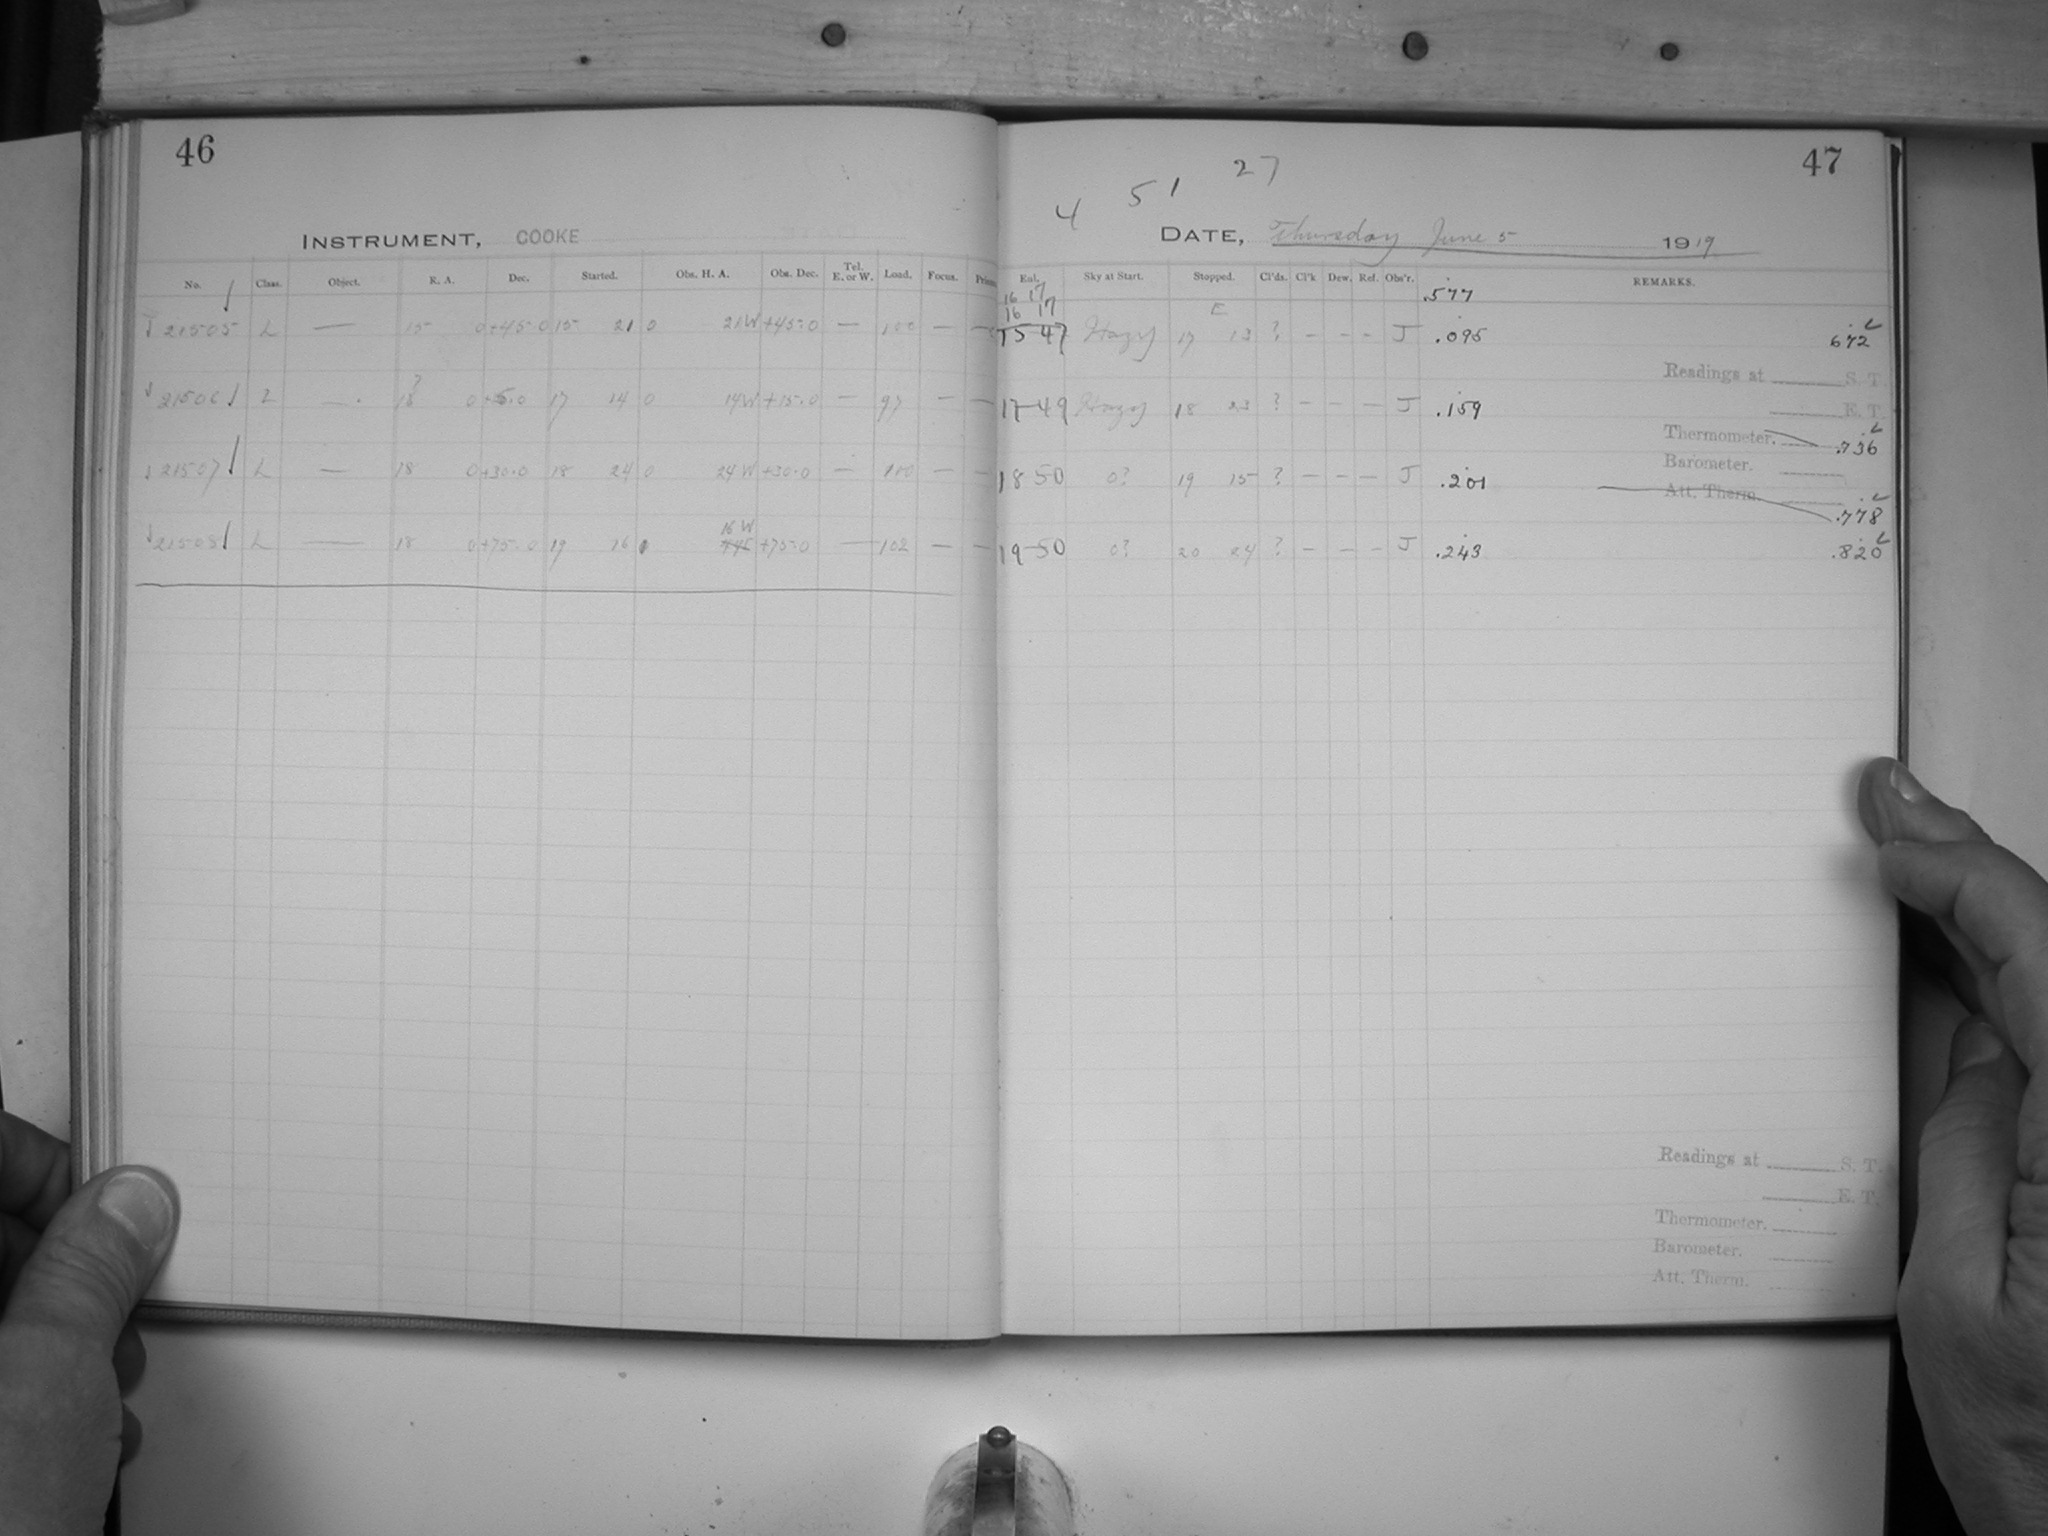 46
INSTRUMENT, COOKE
No. Class. Object. R. A. Dec. Started. Obs. H. A. Obs. Dec. Tel. E. or W. Load. Focus.
21505 L — 15 0 +45.0 15 21 0 21W +45.0 — 100 — —
21506 L — ? 18 0 +15.0 17 14 0 14W +15.0 — 97 — —
21507 L — 18 0 +30.0 18 24 0 24W +30.0 — 100 — —
21508 L — 18 0 +75.0 19 16 0 16W +75.0 — 102 — —
47
4 51 27
DATE, Thursday June 5 1919
Sky at Start. Stopped. Cl'ds. Cl'k Dew. Ref. Obs'r. REMARKS.
16 17 .577
16 17 E
15 47 Hazy 17 13 ? - - - J .095 672
Readings at S. T.
17-49 Hazy 18 23 ? - - - J .159
E. T.
Thermometer. .736
Barometer.
18 50 0? 19 15 ? - - - J .201
Att. Therm. .778
19-50 0? 20 24 ? - - - J .243 .820
Readings at S. T.
E. T.
Thermometer.
Barometer.
Att. Therm.